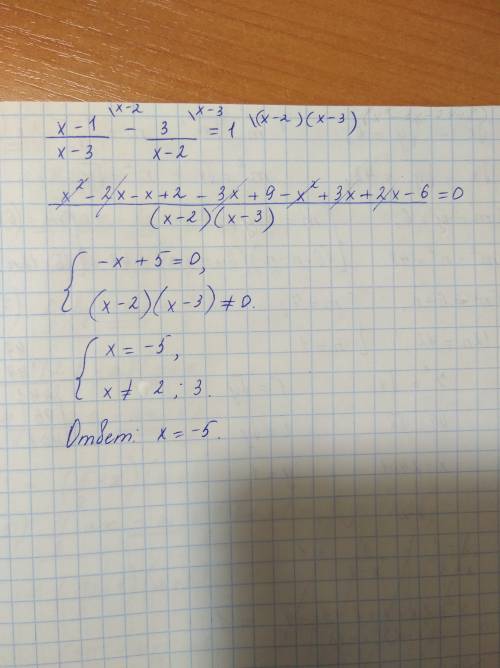 (x-1)/(x-3) \x-2 - 3/(x-2) \x-3 = 1 \(x-2)(x-3)
(x² - 2x - x + 2 - 3x + 9 - x² + 3x + 2x - 6)/((x-2)(x-3)) = 0
{ -x + 5 = 0,
(x-2)(x-3) ≠ 0.
{ x = -5,
x ≠ 2 ; 3.
Ответ: x = -5.